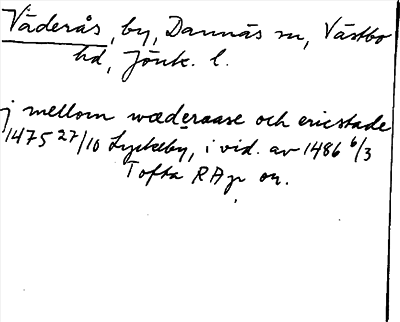 Väderås, by, Dannäs sn, Västbo
hd, Jönk. l.
j mellom wæderaase och ericstade
1475 27/10 Lyckeby, i vid. av 1486 6/3
Tofta RAp or.